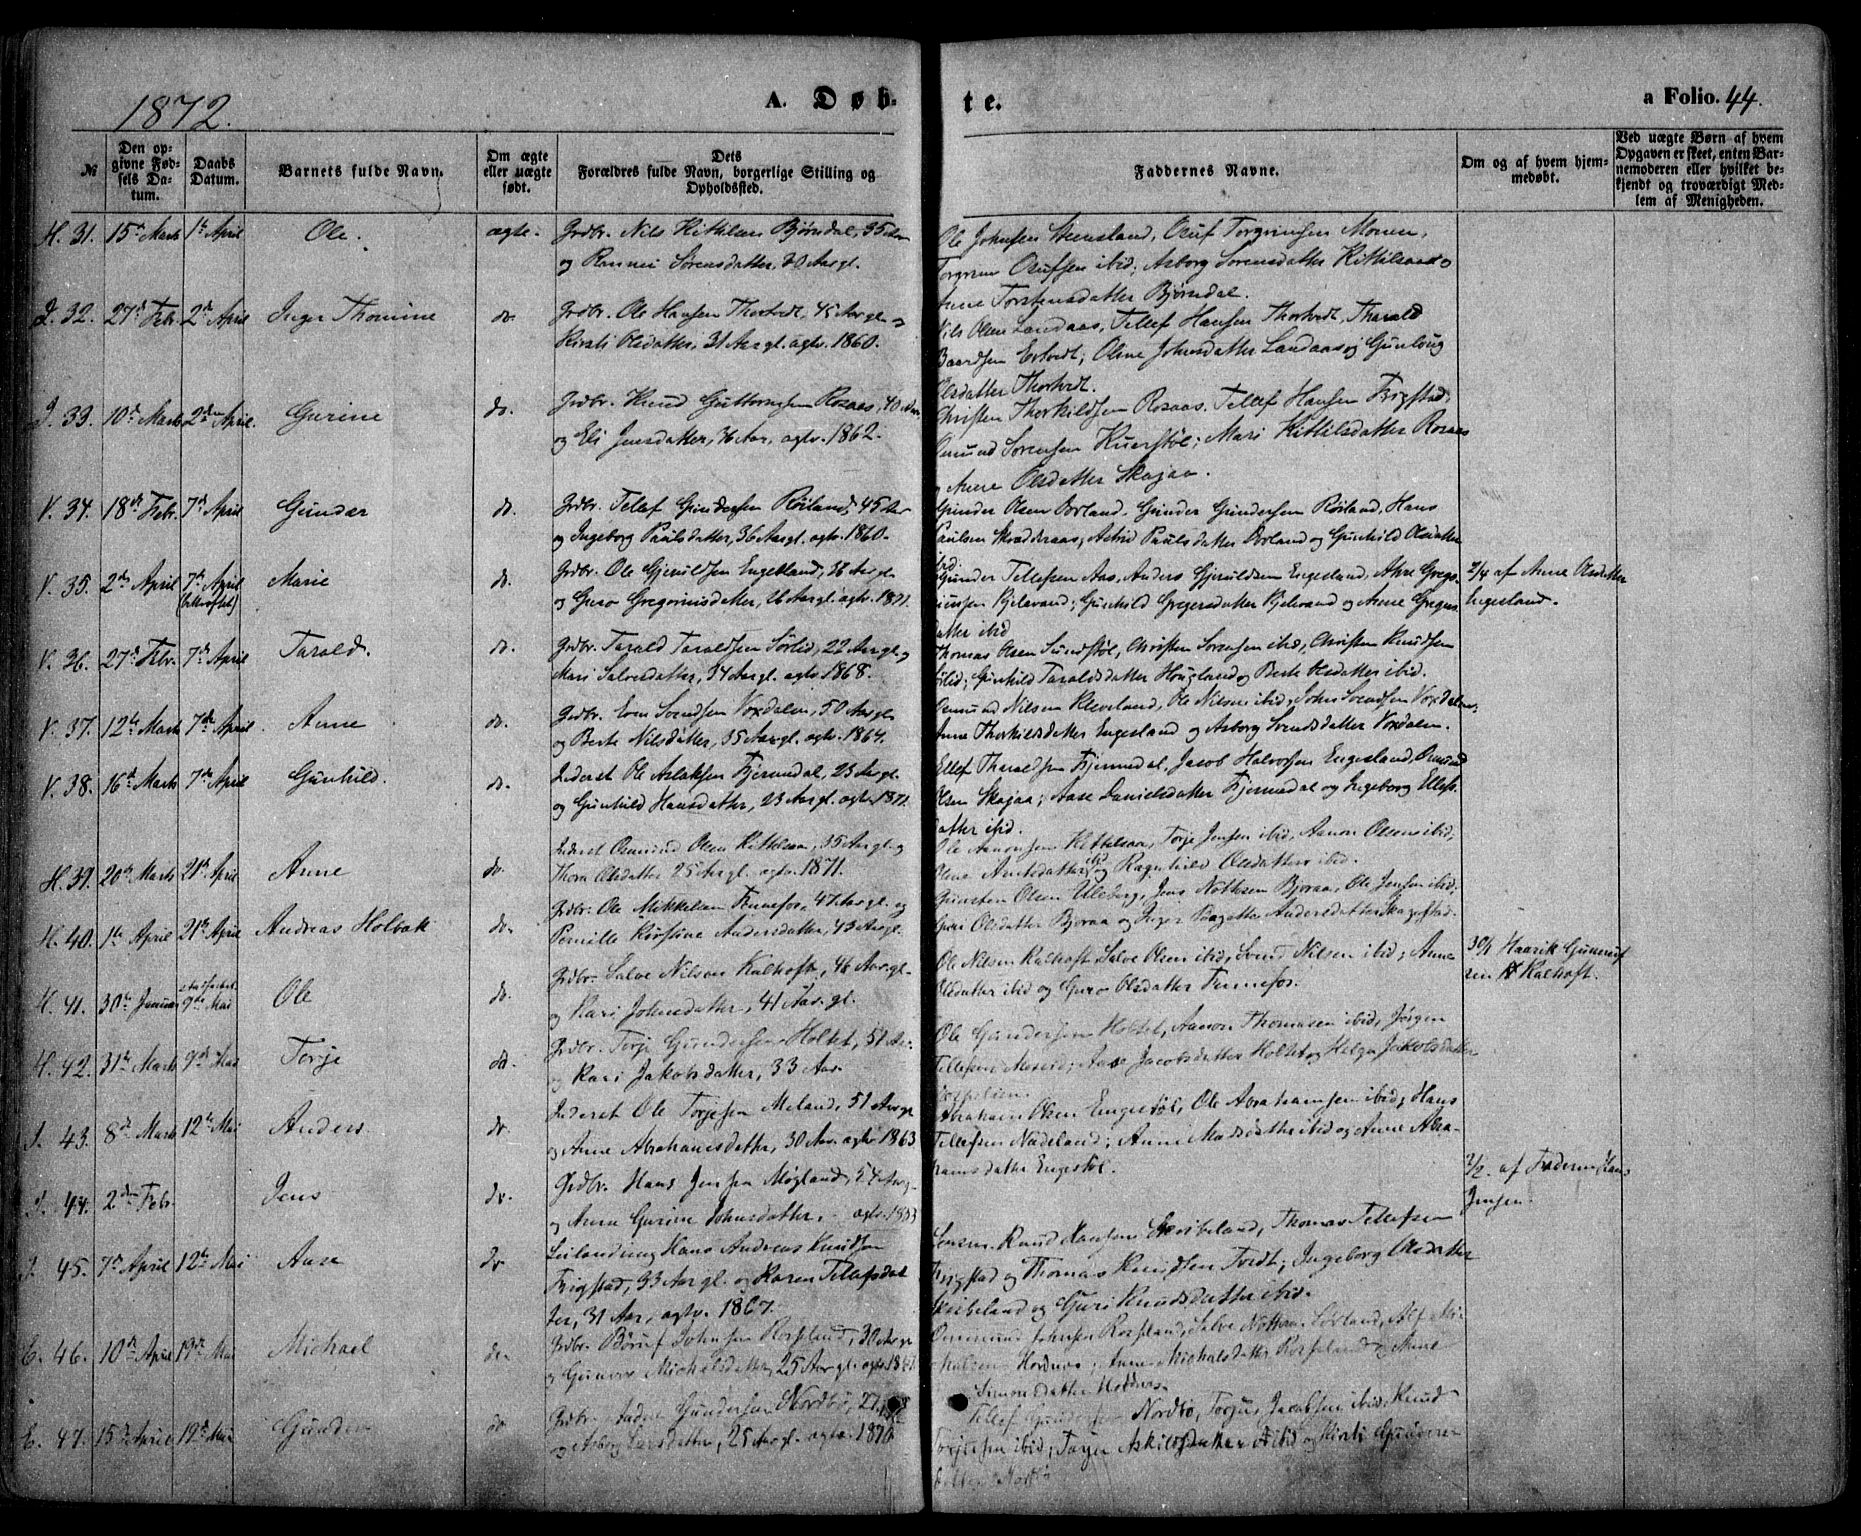 1872.
A. Døb-
te.
a Folio. 44.
№
Den op-
givne Fød-
sels Da-
tum.
Daabs
Datum.
Barnets fulde Navn.
Om ægte
eller uægte
født.
Dets
Forældres fulde Navn, borgerlige Stilling og
Opholdssted.
Faddernes Navne.
Om og af hvem hjem-
medøbt.
Ved uægte Børn af hvem
Opgaven er skeet, enten Bar-
nemoderen eller hvilket be-
kjendt og troværdigt Med-
lem af Menigheden.
H. 31. 15de Marts 1te April Ole. ægte. Grdbr. Nils Kittilsen Bjørndal, 35 Aar
og Rannei Sørensdatter, 30 Aar gl.
Ole Johnsen Steensland, Osuf Torgrimsen Moen,
Torgrim Osufsen ibid; Asborg Sørensdatter Kittilsaas og
Anne Torstensdatter Bjørndal.
I. 32. 27de Febr. 2den April Inger Thomine do. Grdbr. Ole Hansen Thortvedt, 45 Aar gl. og
Kirsti Olsdatter, 31 Aar gl. egtv. 1860.
Nils Olsen Landaas, Tellef Hansen Thortvedt, Tharald
Baardsen Ertvedt; Olene Johnsdatter Landaas og Gunlaug
Olsdatter Thortvedt.
I. 33. 10de Marts 2den April. Gurine do. Grdbr. Knud Guttormsen Rosaas, 40 Aar
og Eli Jensdatter, 36 Aar, egtv. 1862.
Christen Thorkildsen Rosaas, Tellef Hansen Frigstad,
Omund Sørensen Kverstøl; Mari Kittilsdatter Rosaas
og Anne Olsdatter Skajaa.
V. 34. 18de Febr. 7de April Gunder do. Grdbr. Tellef Gundersen Røiland, 45 Aar
og Ingeborg Paulsdatter, 36 Aar gl. egtv. 1860.
Gunder Olsen Birland, Gunder Gundersen Røiland, Hans
Paulsen Skædderaas, Astrid Paulsdatter Birland og Gunhild Olsdatter
ibid.
V. 35. 2den April 7de April Marie do. Grdbr. Ole Gjeruldsen Engesland, 36 Aar gl.
og Guro Gregoriusdatter, 26 Aar gl. egtv. 1871.
Gunder Tellefsen Aas, Anders Gjeruldsen Engesland,
Kjelevand; Gunhild Gregersdatter Kjelevand og Anne Gregers-
datter ibid
2/4 af Anne Olsdatter
Engesland.
V. 36. 27de Febr. 7de April Tarald. do. Grdbr. Tarald Taraldsen Sørlid, 22 Aar gl. og
Mari Salvesdatter, 34 Aar gl. egtv. 1868.
Thomas Olsen Sundstøl, Christen Sørensen ibid, Christen Knudsen
Sørlid; Gunhild Taraldsdatter Hougland og Berte Olsdatter ibid.
V. 37. 12te Marts 7de April Anne do. Grdbr. Even Svendsen Voxdalen, 50 Aar gl.
og Berte Nilsdatter, 35 Aar gl. egtv. 1864.
Osmund Nilsen Kleveland, Ole Nilsen ibid, John Svendsen Voxdalen;
Anne Thorkilsdatter Engesland og Asborg Svendsdatter Voxdalen.
V. 38. 16de Marts 7de April Gunhild. do. Inderst Ole Aslaksen Fjermedal, 23 Aar gl.
og Gunhild Hansdatter, 23 Aar gl. egtv. 1871.
Ellef Tharaldsen Fjermedal, Jacob Halvorsen Engesland, Omund
Olsen Skajaa; Aase Danielsdatter Fjermedal og Ingeborg Ellefs-
datter ibid.
H. 39. 20de Marts 21de April Anne do. Inderst Osmund Olsen Kittilsaa, 35 Aar gl. og
Thora Olsdatter 25 Aar gl. egtv. 1871.
Ole Aanonsen Kittilsaa, Torje Jensen ibid, Aanon Olsen ibid;
Olene Arntsdatter ibid og Ragnhild Olsdatter ibid.
H. 40. 1te April 21de April Andreas Holbæk do. Grdbr. Ole Mikkelsen Fennefos, 47 Aar gl. og
Pernille Kirstine Andersdatter, 43 Aar gl.
Gunsten Olsen Uleberg, Jens Nottesen Bjoraa, Ole Jensen ibid;
Guri Olsdatter Bjoraa og Inger Andersdatter Skagestad.
H. 41. 30te Januar 9de Mai Ole do. Grdbr. Salve Nilsen Kalhoft, 46 Aar gl.
og Kari Johnsdatter, 41 Aar gl.
Ole Nilsen Kalhoft, Salve Olsen ibid, Svend Nilsen ibid; Anne
Olsdatter ibid og Guro Olsdatter Fennefos.
30/1 Haavik Gunnuf-
sen Kalhoft.
H. 42. 31te Marts 9de Mai Torje do. Grdbr. Torje Gundersen Holtet, 51 Aar
og Kari Jakobsdatter, 33 Aar.
Ole Gundersen Holtet, Aanon Thomasen ibid, Jørgen
Tellefsen Moseid; Aase Jacobsdatter Holtet og Helga Jakobsdatter
I. 43. 8de Marts 12te Mai Anders. do. Inderst Ole Torjesen Meland, 51 Aar gl.
og Anne Abrahamsdatter, 30 Aar, egtv. 1863
Abraham Olsen Engestøl, Ole Abrahamsen ibid, Hans
Tellefsen Nådeland; Anne Madsdatter ibid og Anne Abra-
hamsdatter Engestøl.
I. 44. 2den Febr. Jens do. Grdbr. Hans Jensen Møgland, 54 Aar gl.
og Anne Gurine Johnsdatter, egtv. 1853
2/2. af Faderen Hans
Jensen.
I. 45. 7de April 12te Mai Aase do. Leilænding Hans Andreas Knudsen
Frigstad, 33 Aar gl. og Karen Tellefsdat-
ter, 31 Aar, egtv. 1867.
Knud Hansen Skribeland, Thomas Tellefsen
Frigstad og Thomas Knudsen Tvedt; Ingeborg Olsdatter
Skribeland og Guri Knudsdatter ibid.
E. 46. 10de April 19de Mai Michael do. Grdbr. Børuf Johnsen Rosseland, 30 Aar gl.
og Gunvor Michelsdatter, 25 Aar gl. egtv. 1871
Ommund Johnsen Rosseland, Salve Nottsen Sørland, Alf Mi-
chalsen Hodnes; Anne Michalsdatter Rosseland og Anne
Simonsdatter Hodnes.
E. 47. 15de April 19de Mai Gunder do. Grdbr. Gundersen Nordbø, 27
og Asborg Larsdatter, 25 Aar gl. egtv. 1870
Tellef Gundersen Nordbø, Torjus Jacobsen ibid, Knud
Torjusen ibid; Torjer Askildsdatter ibid og Kirsti Gunders-
datter Nordbø